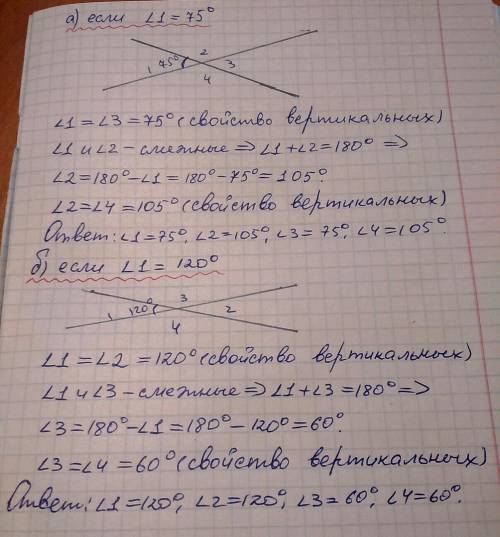 а) если ∠1 = 75°
2
1 75° 3
4
∠1 = ∠3 = 75° (свойство вертикальных)
∠1 и ∠2 - смежные ⇒ ∠1 + ∠2 = 180° ⇒
∠2 = 180° - ∠1 = 180° - 75° = 105°.
∠2 = ∠4 = 105° (свойство вертикальных)
Ответ: ∠1 = 75°, ∠2 = 105°, ∠3 = 75°, ∠4 = 105°.
б) если ∠1 = 120°
3
1 120° 2
4
∠1 = ∠2 = 120° (свойство вертикальных)
∠1 и ∠3 - смежные ⇒ ∠1 + ∠3 = 180° ⇒
∠3 = 180° - ∠1 = 180° - 120° = 60°.
∠3 = ∠4 = 60° (свойство вертикальных)
Ответ: ∠1 = 120°, ∠2 = 120°, ∠3 = 60°, ∠4 = 60°.